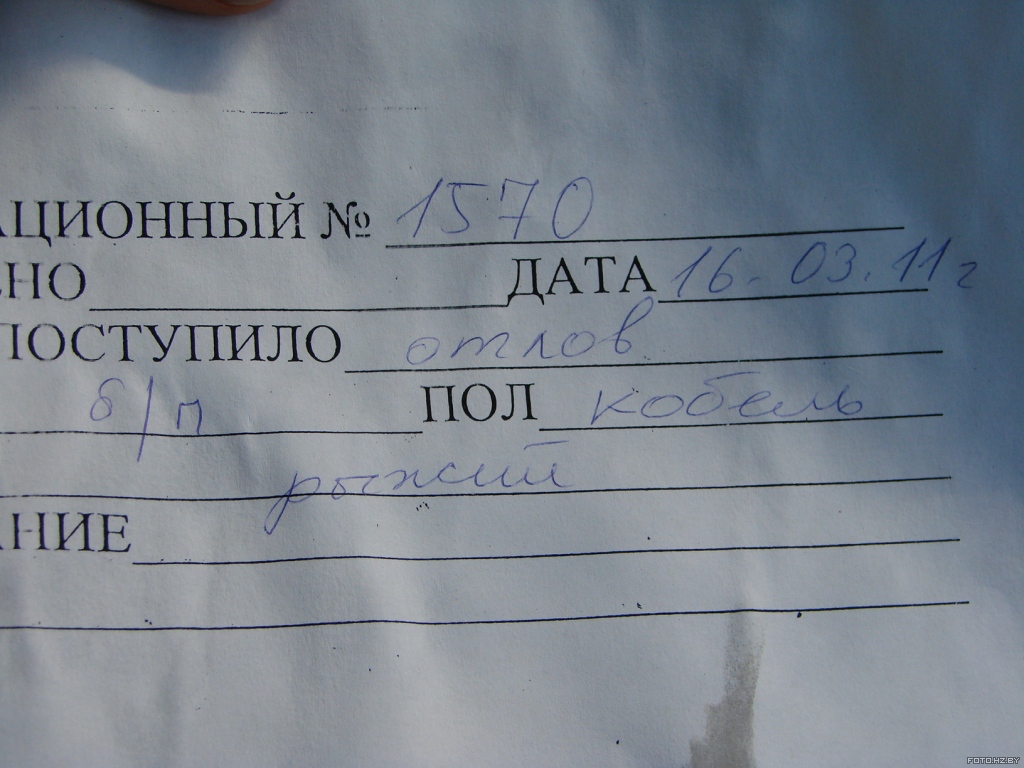 АЦИОННЫЙ № 1570
НО ДАТА 16.03.11 г
ПОСТУПИЛО отлов
б/п ПОЛ кобель
рыжий
АНИЕ
FOTO.HZ.BY